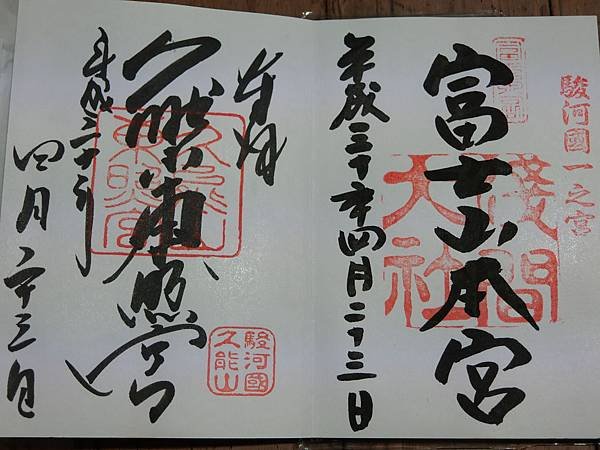 駿河國一之宮
富士山本宮
淺間
大社
平成三十年四月二十三日
奉拝
久能山東照宮
久能山
東照宮
駿河國
久能山
平成三十年
四月二十三日